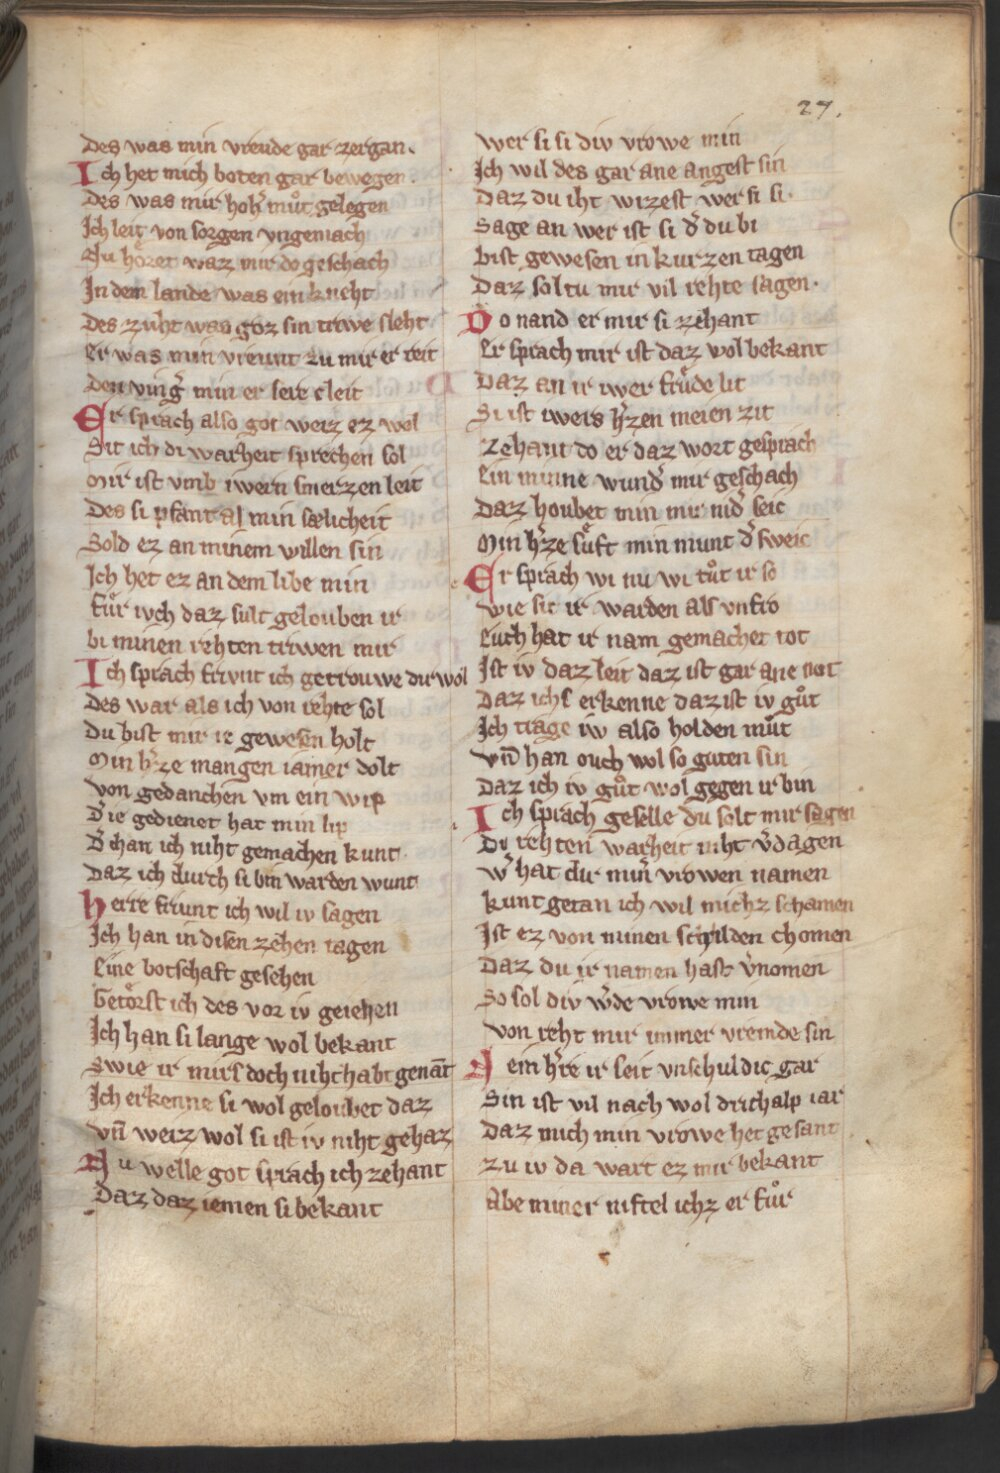 27.
Des was min vreude gar zergan.
Ich het mich boten gar bewegen.
Des was mir hoh͛ muͦt gelegen
Ich leit von sorgen vngemach
Nu hoͤret waz mir do geschach
In dem lande was ein kneht
Des zuht was goz sin triwe sleht
Er was min vreunt zu mir er reit
Den ving͛ min er sere cleit
Er sprach also got weiz ez wol
Sit ich di warheit sprechen sol
Mir ist vmb iwern smerzen leit
Des si pfant al min sælicheit
Sold ez an minem willen sin
Ich het ez an dem libe min
Fuͤr ivch daz sult gelouben ir
bi minen rehten triwen mir
Ich sprach frivnt ich getrouwe dir wol
Des war als ich von rehte sol
Du bist mir ie gewesen holt
Min h͛ze mangen iamer dolt
Von gedanchen vm ein wip
D͛ ie gedienet hat min lip
D͛ chan ich niht gemachen kunt.
Daz ich durch si bin warden wunt
Herre friunt ich wil iv sagen
Ich han in disen zehen tagen
Eine botschaft gesehen
Getoͤrst ich des vor iv geiehen
Ich han si lange wol bekant
Swie ir mirs doch niht habt genāt
Ich erkenne si wol geloubet daz
Vn̄ weiz wol si ist iv niht gehaz
Nu welle got sprach ich zehant
Daz daz iemen si bekant
Wer si si div vrowe min
Ich wil des gar ane angest sin
Daz du iht wizest wer si si.
Sage an wer ist si d͛ du bi
bist gewesen in kurzen tagen
Daz soltu mir vil rehte sagen.
Do nand er mir si zehant
Er sprach mir ist daz wol bekant
Daz an ir iwer freude lit
Si ist iwers h͛zen meien zit
Zehant do er daz wort gesprach
Ein minne wund͛ mir geschach
Daz houbet min mir nid͛ seic
Min h͛ze suͤft min munt d͛ sweic
Er sprach wi nu wi tuͦt ir so
Wie sit ir warden als vnfro
Euch hat ir nam gemachet rot
Ist iv daz leit daz ist gar ane not
Daz ichs erkenne daz ist iv guͦt
Ich trage iw also holden muͦt
Vn̄ han ouch wol so guten sin
Daz ich iv guͦt wol gegen ir bin
Ich sprach geselle du solt mir sagen
Di rehten warheit niht v͛dagen
W͛ hat dir min͛ vrowen namen
kunt getan ich wil michz schamen
Ist ez von minen schulden chomen
Daz du ir namen hast v͛nomen
So sol div w͛de vrowe min
Von reht mir immer vremde sin
Nein h͛re ir seit vnschuldic gar
Sin ist vil nach wol drithalp iar
Daz mich min vrowe het gesant
zu iv da wart ez mir bekant
Abe miner niftel ichz er fuͦr